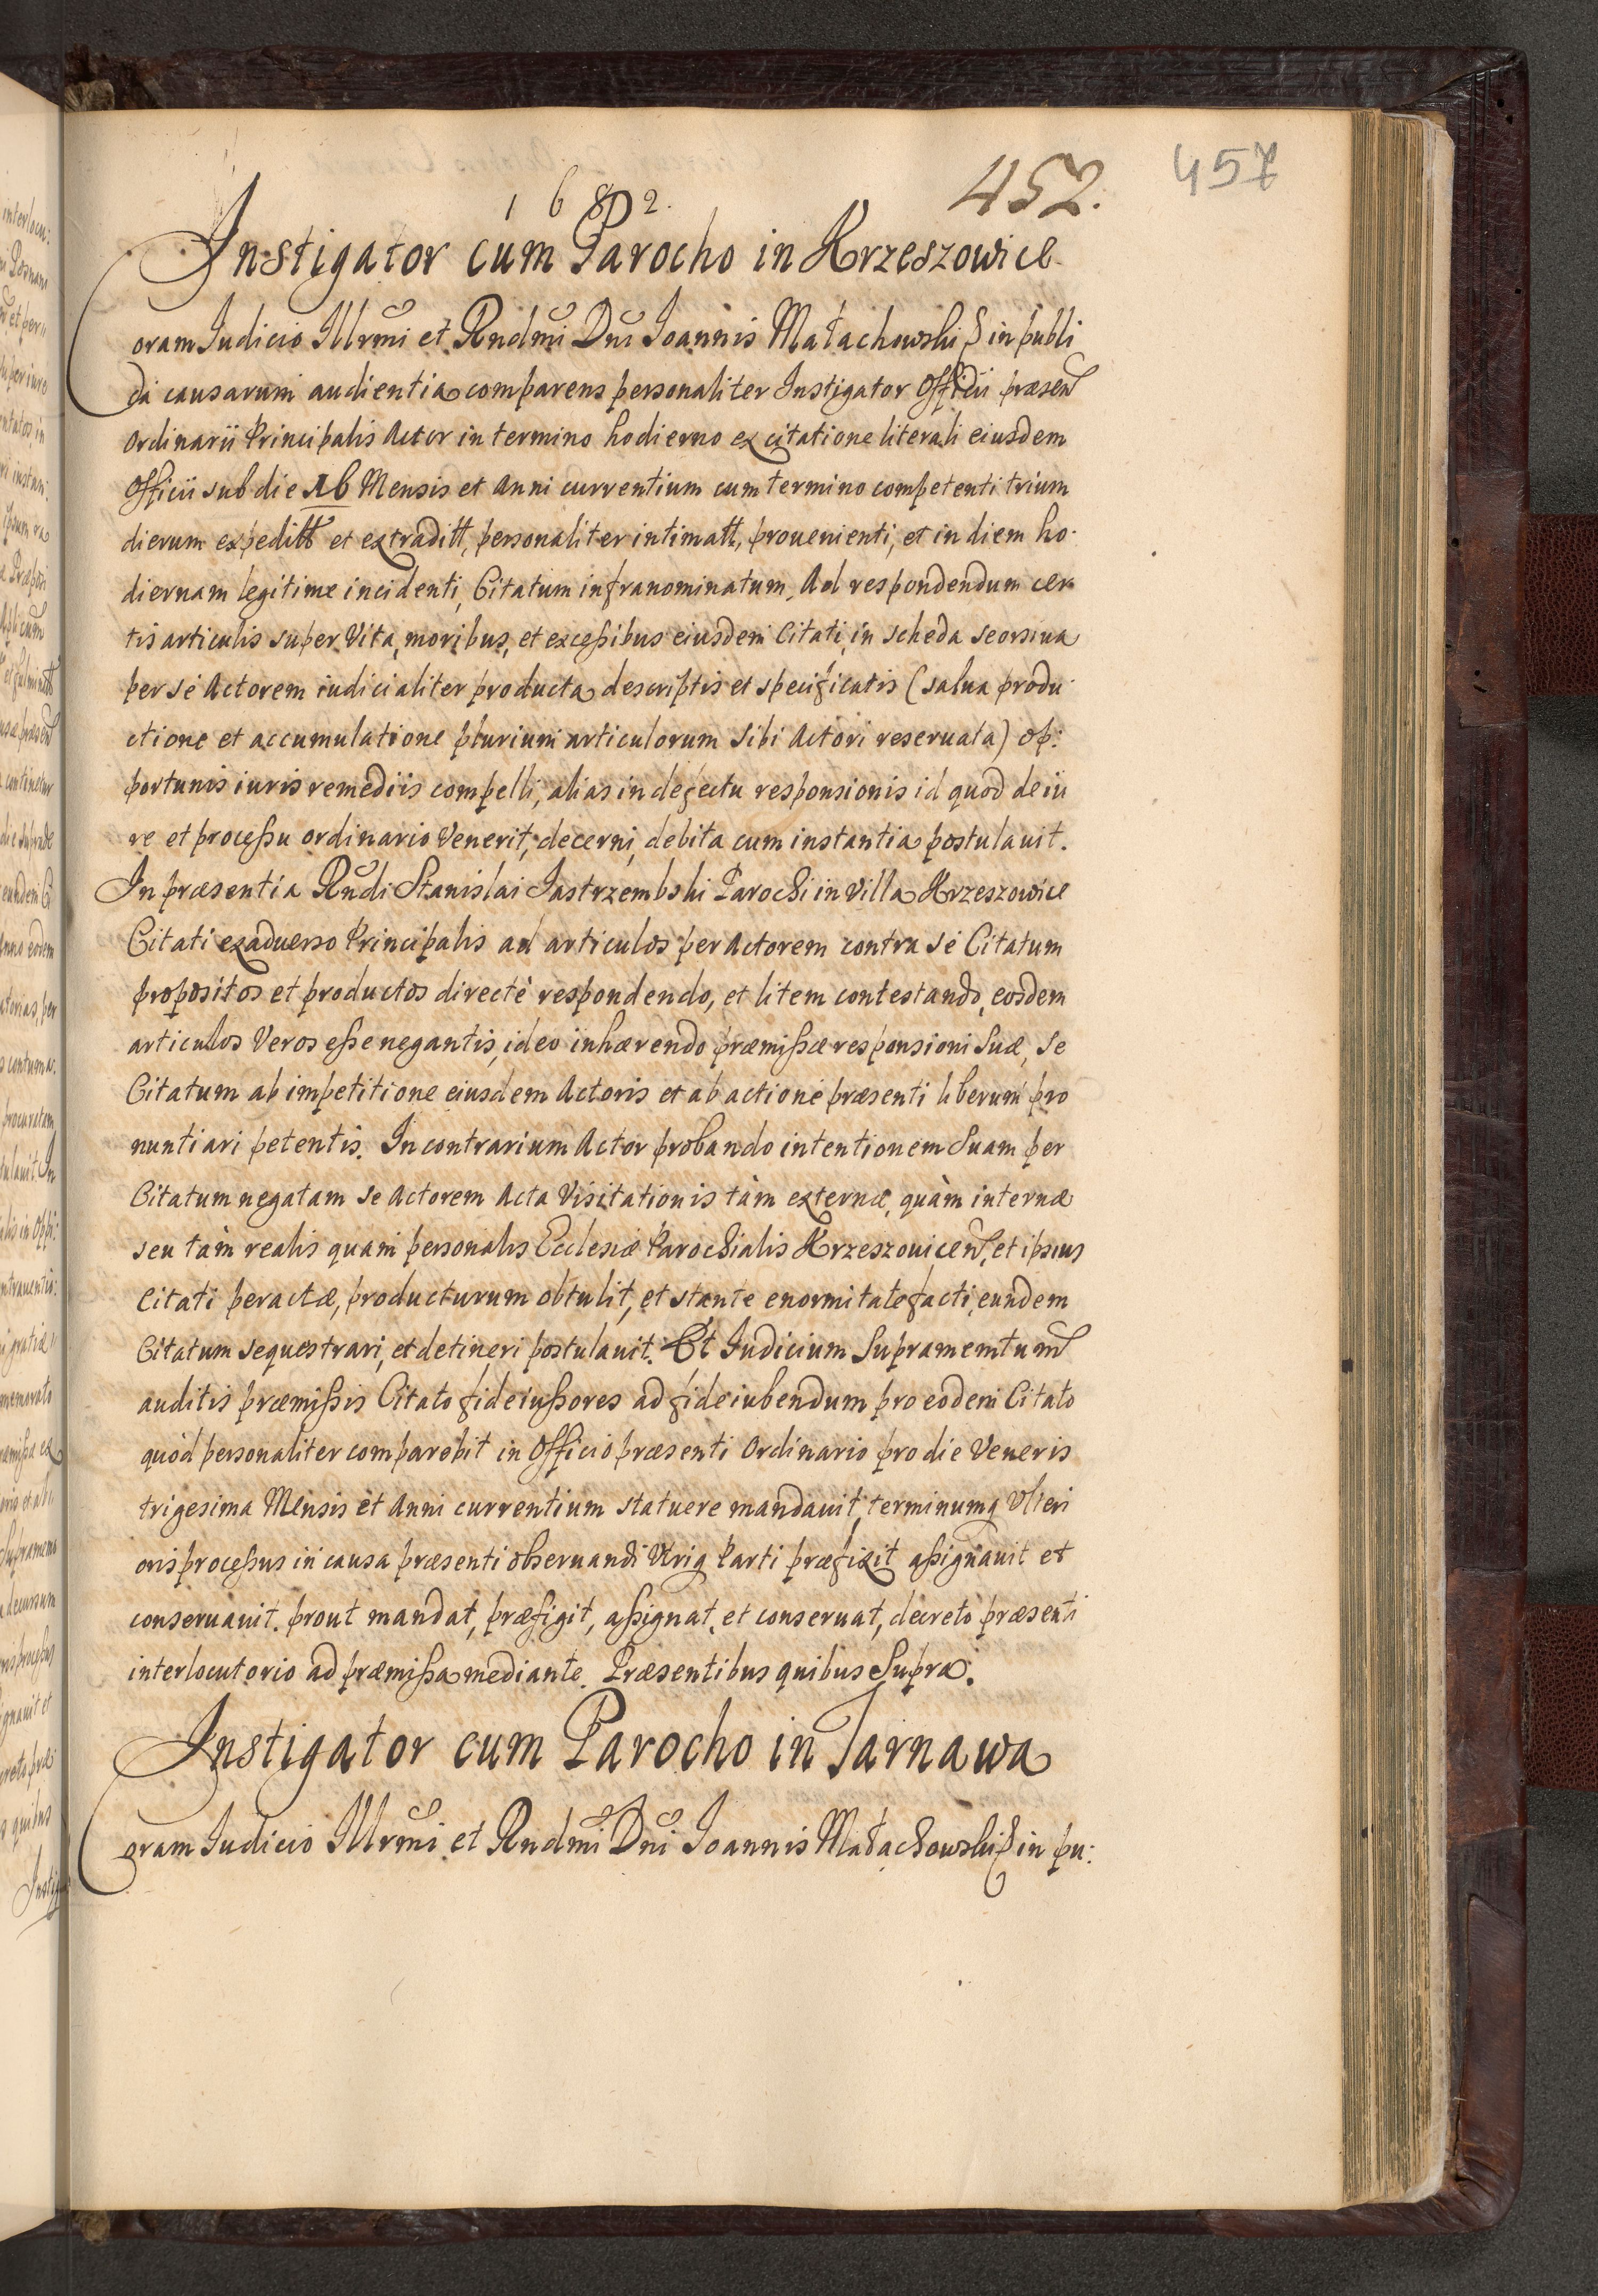 1682.
452.
457
Instigator cum Parocho in Krzeszowice
Coram Iudicio Illrmi et Rndmi Dni Ioannis Małachowski in publi
ca causarum audientia comparens personaliter Instigator Officii præsen
Ordinarii Principalis Actor in termino hodierno ex citatione literali eiusdem
Officii sub die 16 Mensis et Anni currentium cum termino competenti trium
dierum expeditt et extraditt, personaliter intimatt, prouenienti, et in diem ho-
diernam legitime incidenti, Citatum infranominatum, Ad respondendum cer
tis articulis super Vita, moribus, et excessibus eiusdem Citati, in scheda seorsiua
per se Actorem iudicialiter producta descriptis et specificatis (salua produ
ctione et accumulatione plurium articulorum sibi Actori reseruata) op:
portunis iuris remediis compelli, alias in defectu responsionis id quod de iu
re et processu ordinario Venerit, decerni, debita cum instantia postulauit.
In præsentia Rndi Stanislai Jastrzembski Parochi in Villa Krzeszowice
Citati ex aduerso Principalis ad articulos per Actorem contra se Citatum
propositos et productos directè respondendo, et litem contestando, eosdem
articulos Veros esse negantis, ideo inhærendo præmissæ responsioni suæ, se
Citatum ab impetitione eiusdem Actoris et ab actione præsenti liberum pro
nuntiari petentis. In contrarium Actor probando intentionem suam per
Citatum negatam se Actorem Acta Visitationis tàm externæ, quàm internæ
seu tàm realis quam personalis Ecclesiæ Parochialis Krzeszouicen, et ipsius
Citati peractæ, producturum obtulit, et stante enormitate facti, eundem
Citatum sequestrari, et detineri postulauit. Et Iudicium Supramemtum
auditis præmissis Citato fideiussores ad fideiubendum pro eodem Citato
quòd personaliter comparebit in Officio præsenti Ordinario pro die Veneris
trigesima Mensis et Anni currentium statuere mandauit, terminumq Vlteri
oris processus in causa præsenti obseruandi Vtriq Parti præfixit assignauit et
conseruauit. prout mandat, præfigit, assignat, et conseruat, decreto præsenti
interlocutorio ad præmissa mediante. Præsentibus quibus Supra.
Instigator cum Parocho in Tarnawa
Coram Iudicio Illrmi et Rndmi Dni Ioannis Małachowski in pu: